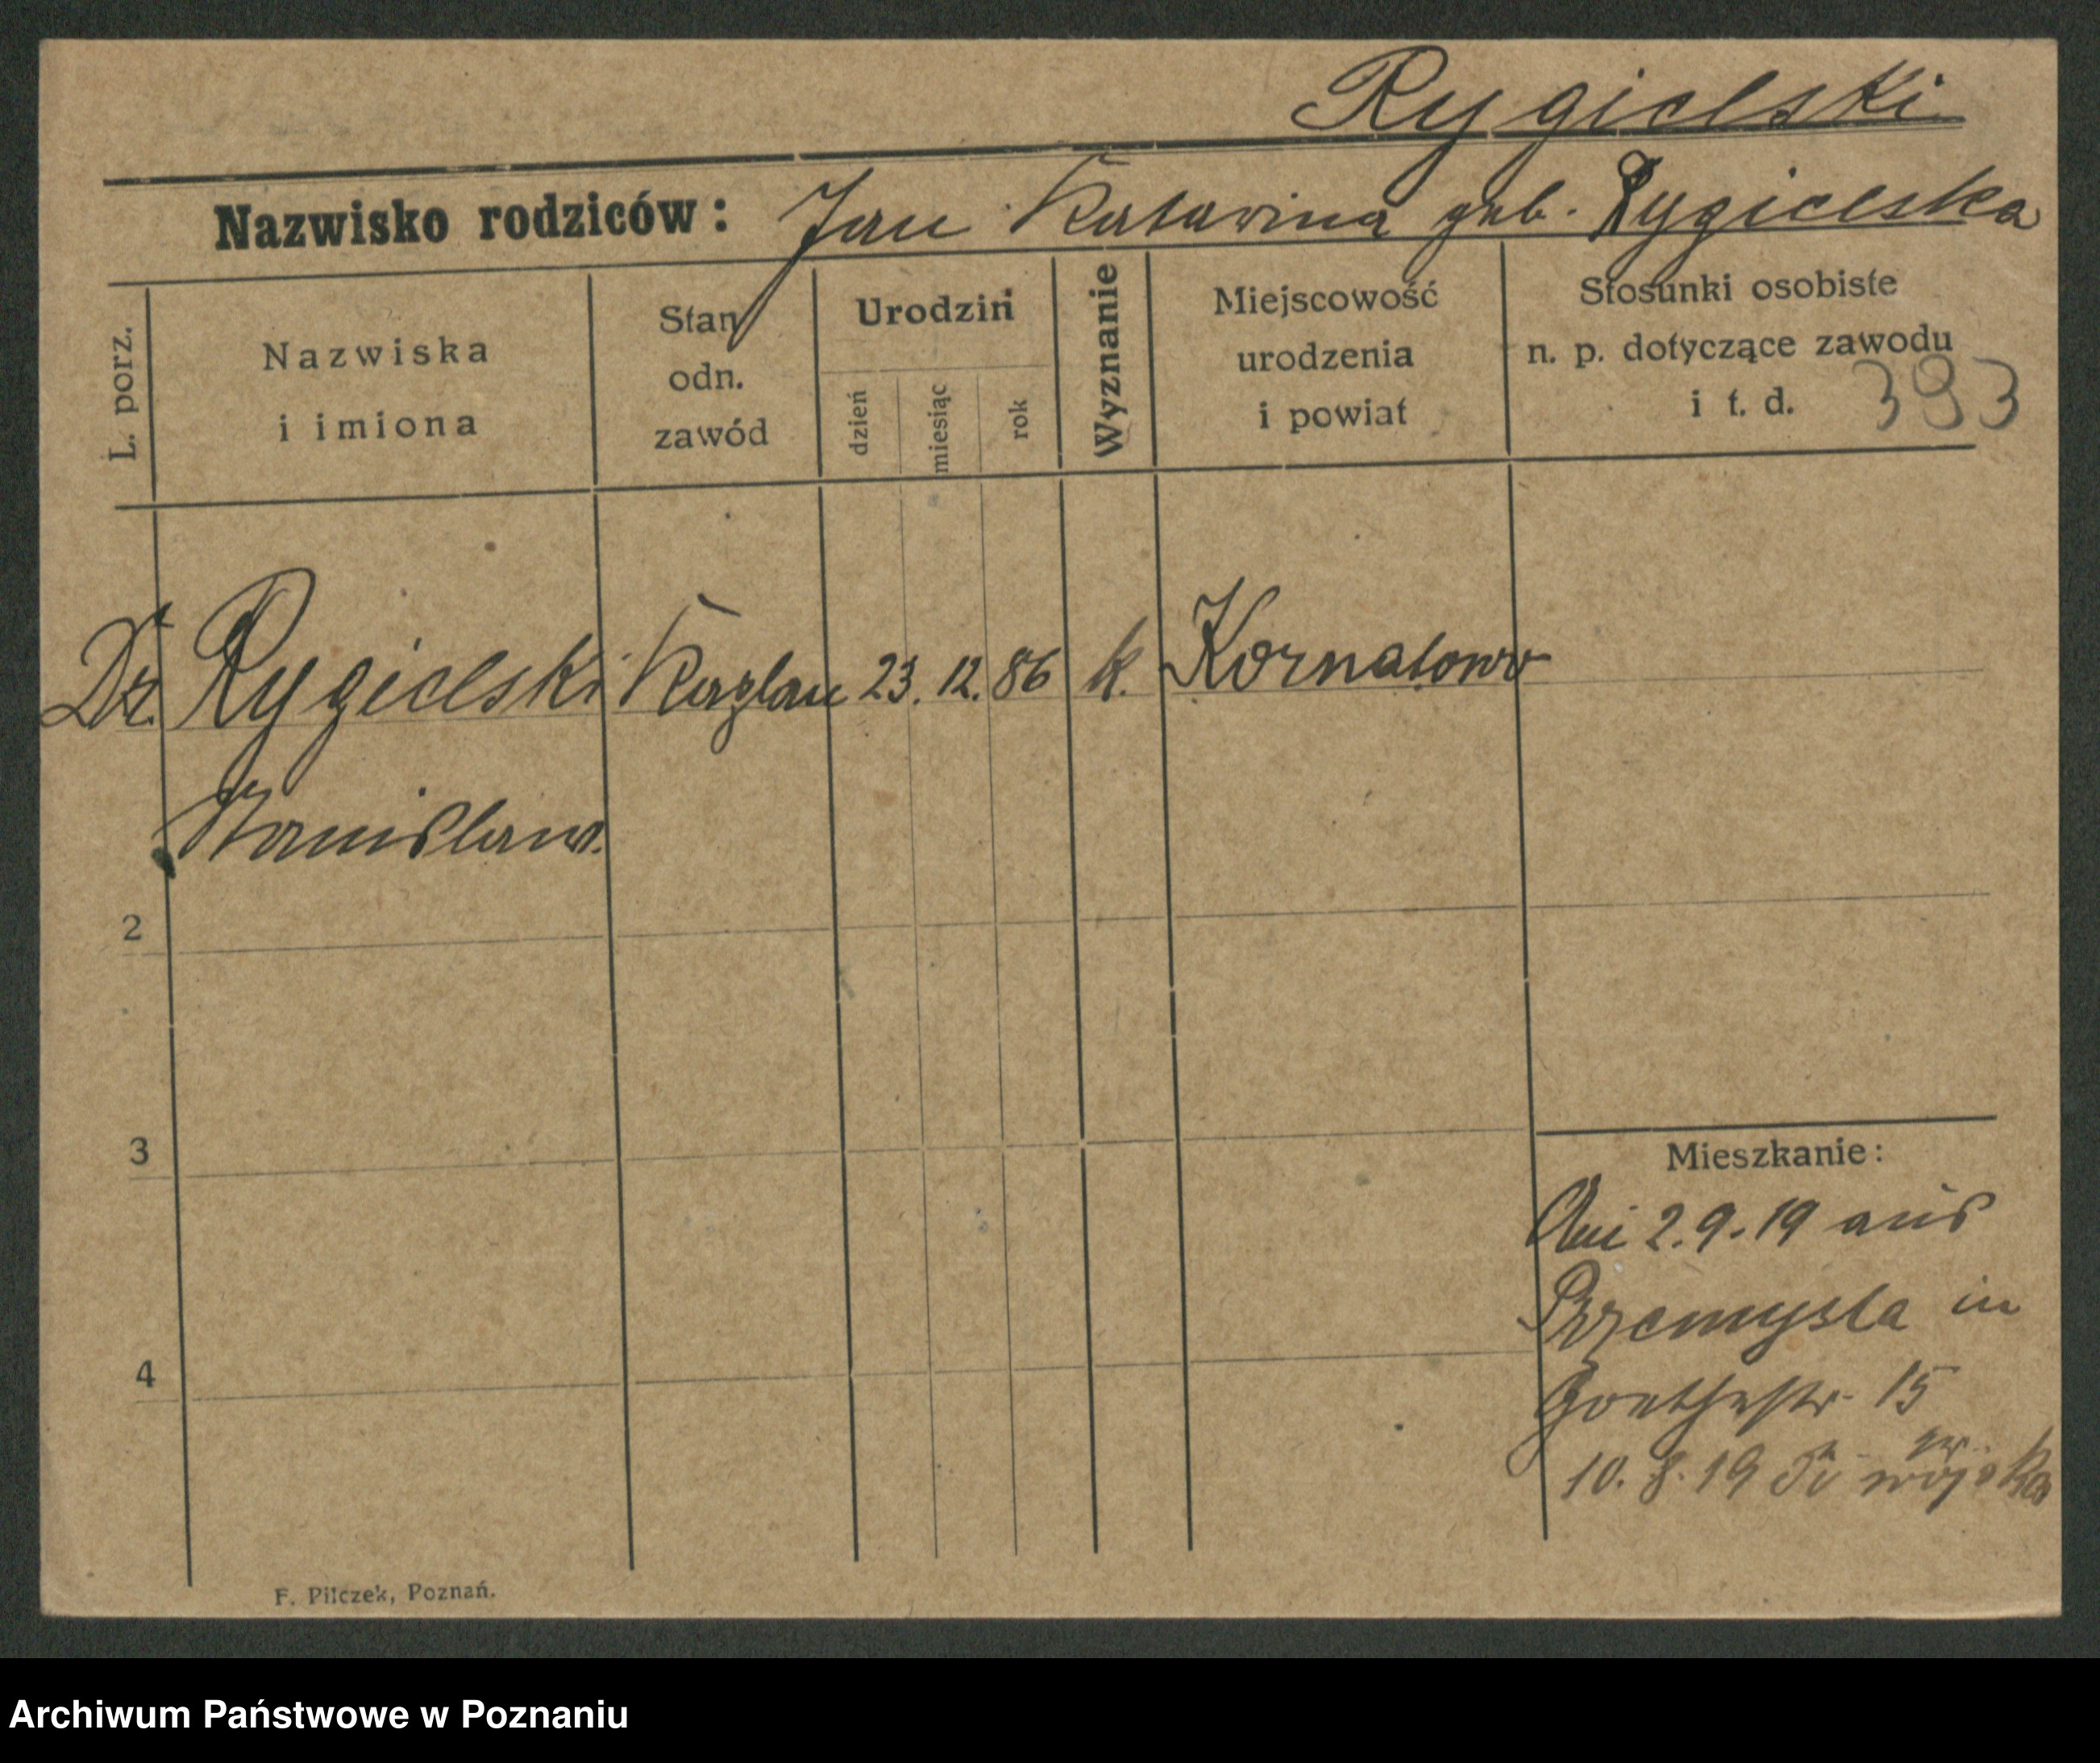 Rygielski
Nazwisko rodziców: Jan Katarina geb. Rygielska
L. porz.
Nazwiska
i imiona
Stan
odn.
zawód
Urodzin
dzień
miesiąc
rok
Wyznanie
Miejscowość
urodzenia
i powiat
Stosunki osobiste
n. p. dotyczące zawodu
i t. d. 393
Dr. Rygielski Kaplan 23. 12. 86 k. Kornatowo
Stanislaw.
2
3
4
Mieszkanie:
2.9.19 aus
Przemysla in
Goethestr. 15
10. 8. 19 wojska
F. Pilczek, Poznań.
Archiwum Państwowe w Poznaniu